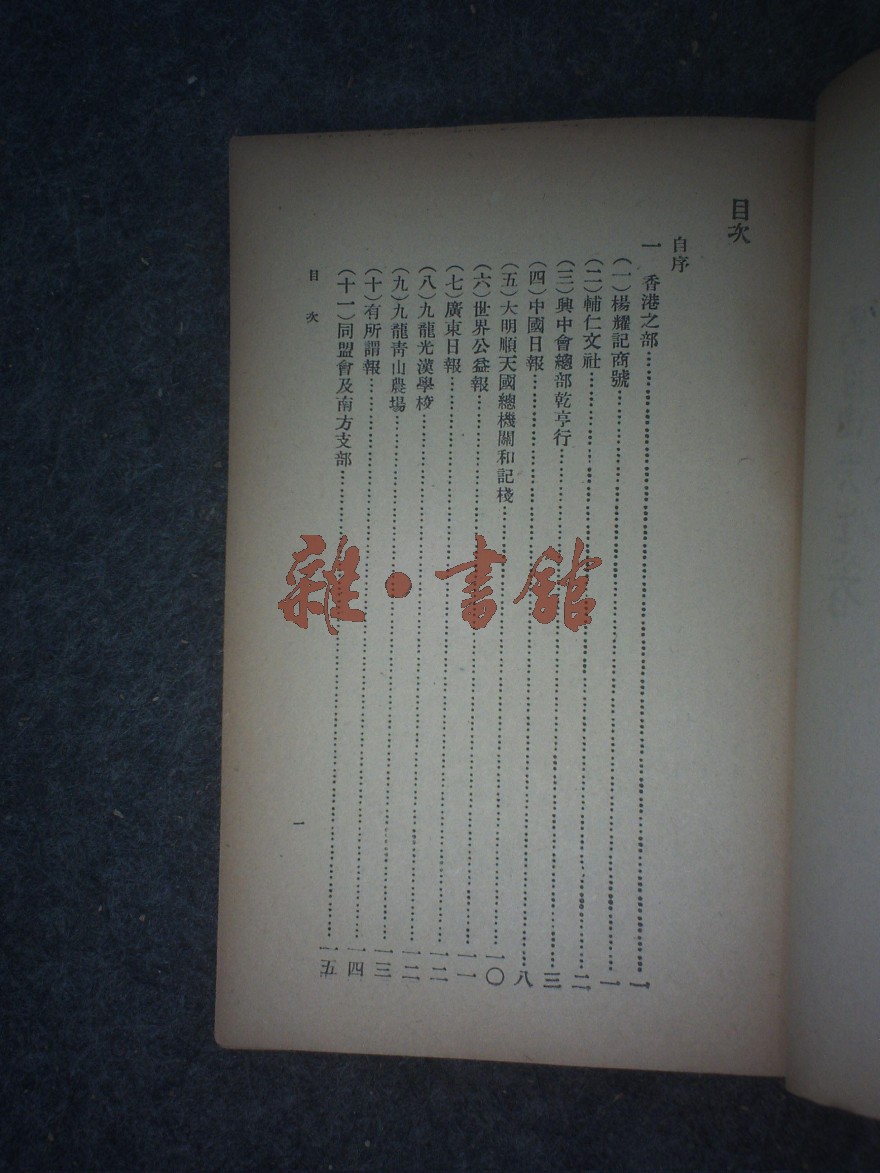 目次
自序
一 香港之部……一
(一)楊耀記商號……一
(二)輔仁文社……二
(三)興中會總部乾亨行……三
(四)中國日報……八
(五)大明順天國總機關和記棧……一〇
(六)世界公益報……一一
(七)廣東日報……一二
(八)九龍光漢學校……一二
(九)九龍靑山農場……一三
(十)有所謂報……一四
(十一)同盟會及南方支部……一五
目次
一
雜·書館